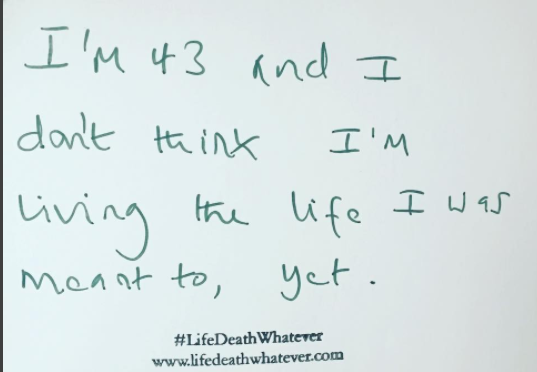 I'M 43 and I
don't think I'M
living the life I was
meant to, yet.
#LifeDeathWhatever
www.lifedeathwhatever.com